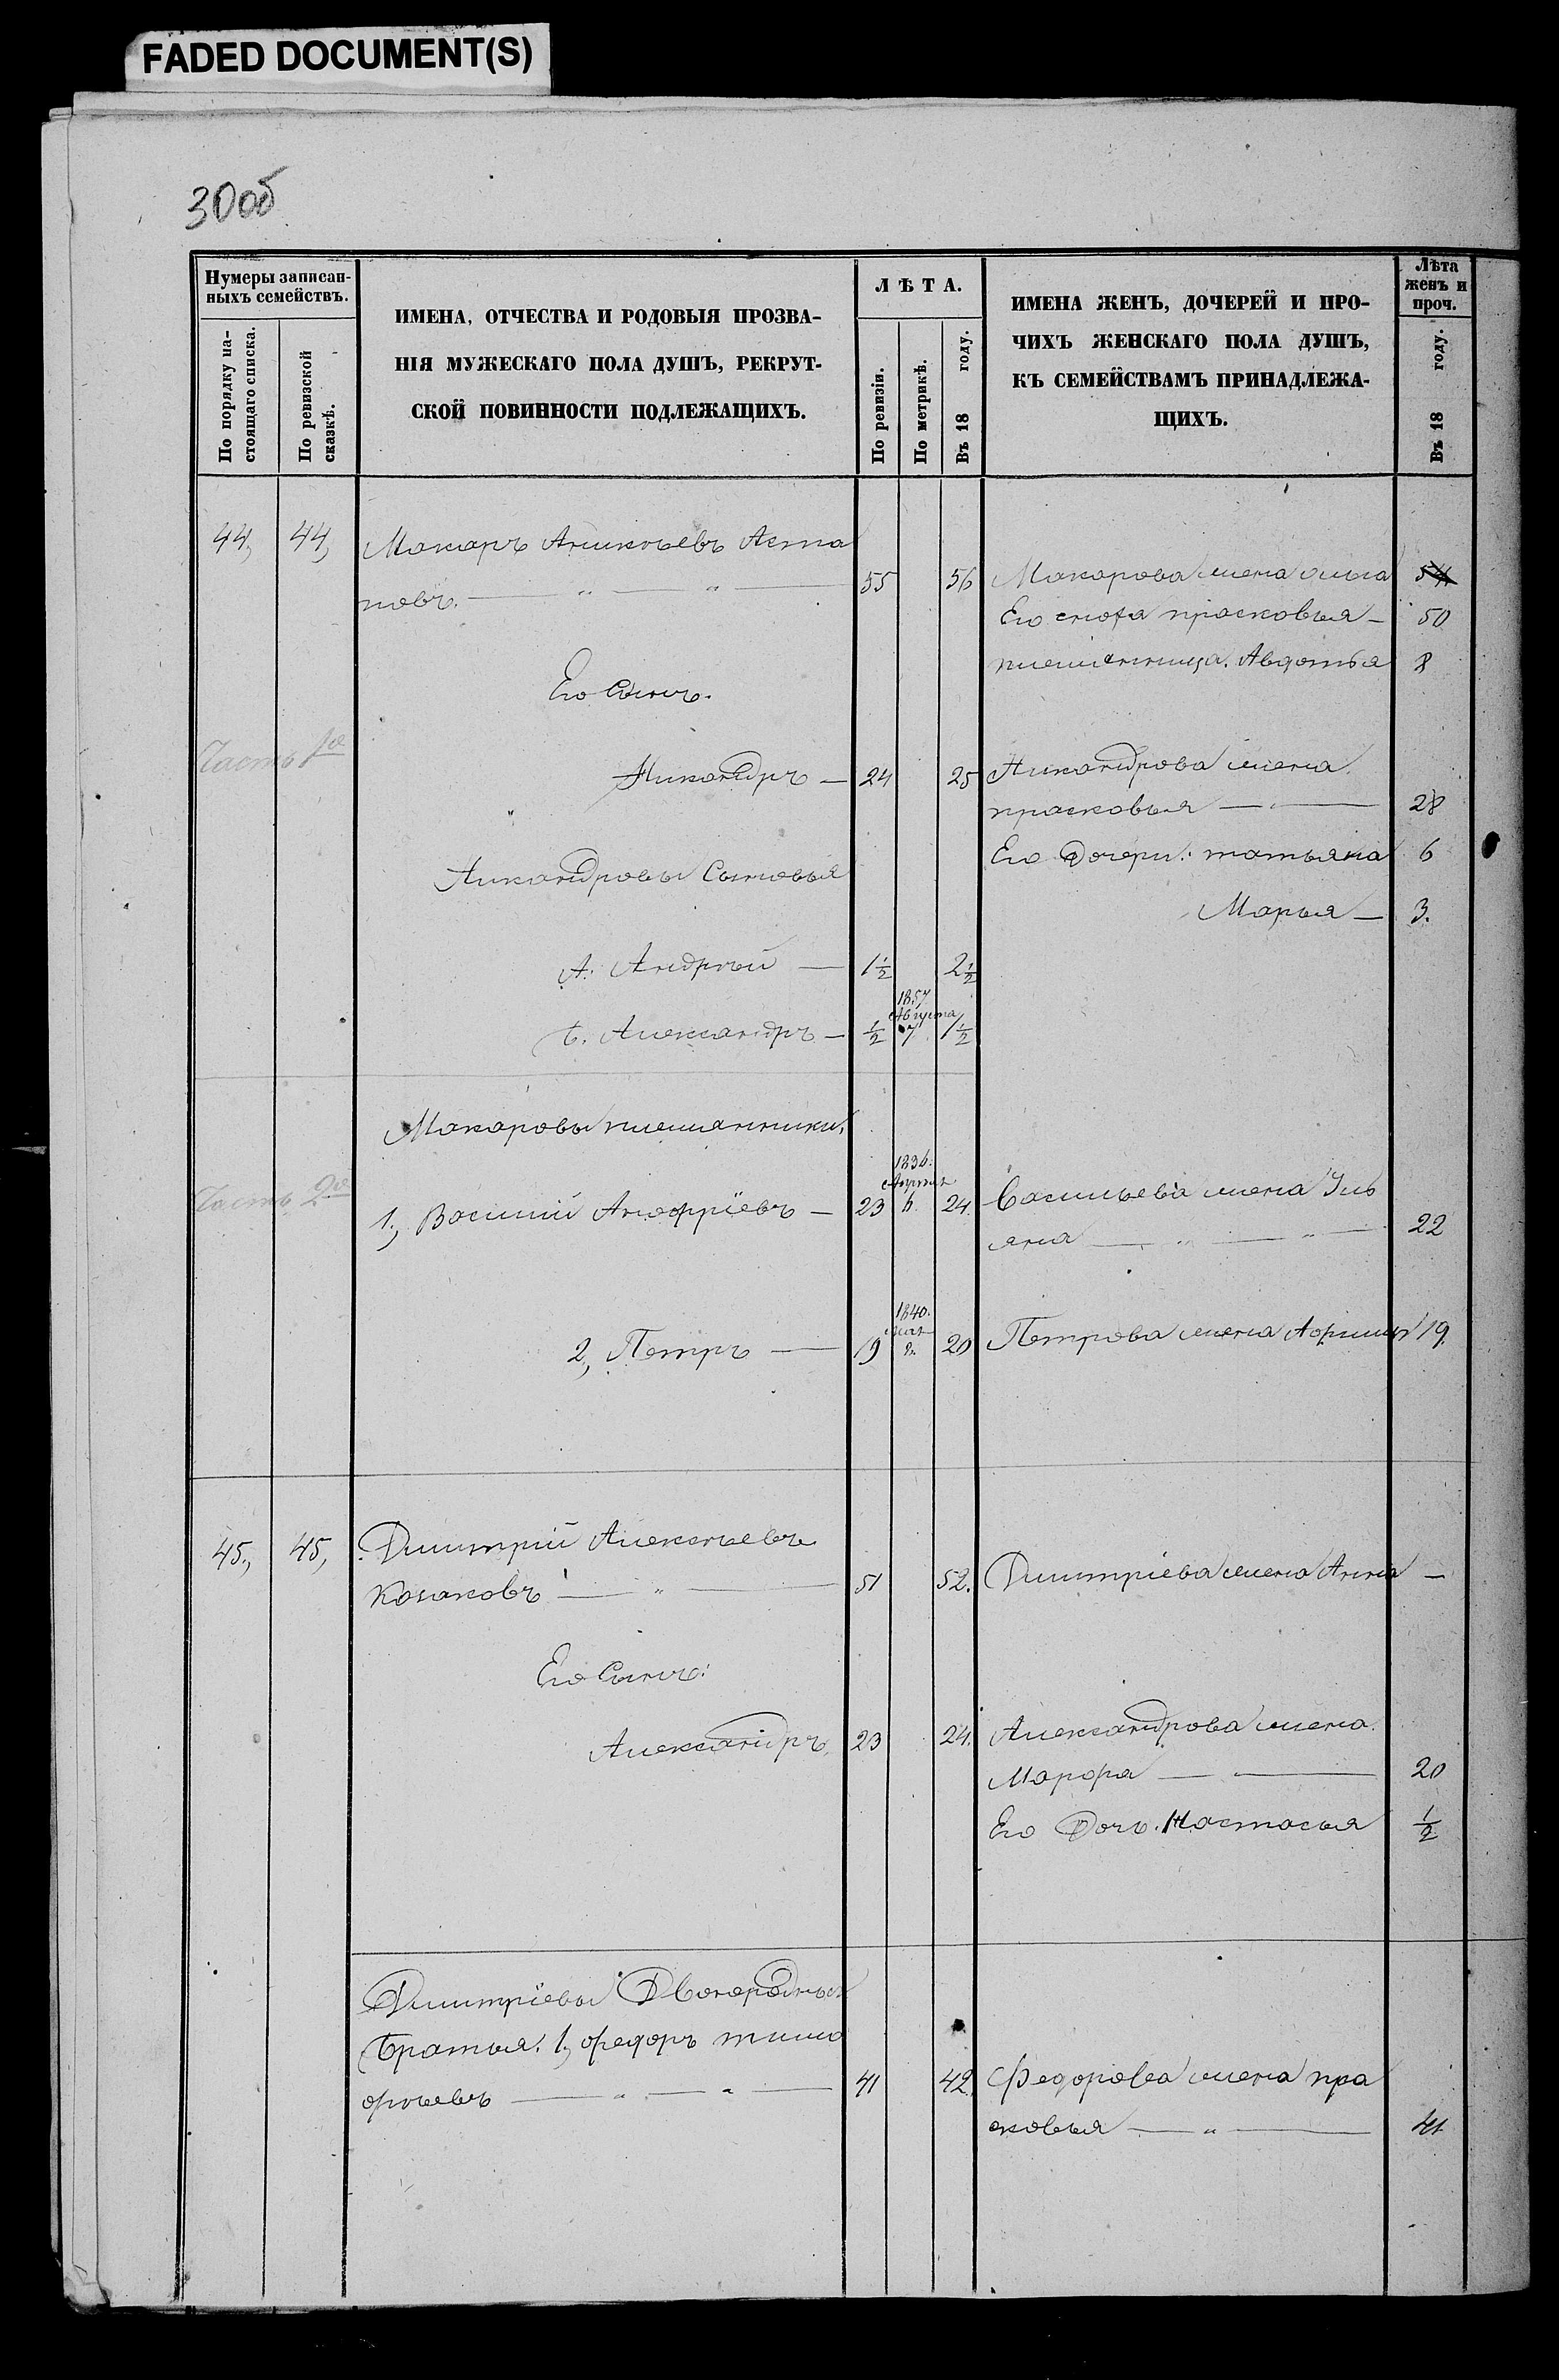 FADED DOCUMENT(S)
30об
Нумеры записан-
ныхъ семействъ.
По порядку на-
стоящаго списка.
По ревизской
сказкѣ.
ИМЕНА, ОТЧЕСТВА И РОДОВЫЯ ПРОЗВА-
НІЯ МУЖЕСКАГО ПОЛА ДУШЪ, РЕКРУТ-
СКОЙ ПОВИННОСТИ ПОДЛЕЖАЩИХЪ.
ЛѢТА.
По ревизіи.
По метрикѣ.
Въ 18 году.
ИМЕНА ЖЕНЪ, ДОЧЕРЕЙ И ПРО-
ЧИХЪ ЖЕНСКАГО ПОЛА ДУШЪ,
КЪ СЕМЕЙСТВАМЪ ПРИНАДЛЕЖА-
ЩИХЪ.
Лѣта
женъ и
проч.
Въ 18 году.
44, 44, Макаръ Аникѣевъ Аста
повъ. — " — " — 55 56 Макарова жена 54
Его сноха прасковья — 50
племянница. Авдотья 8
Его Сынъ.
Часть 1я
Никандръ — 24 25 Никандрова жена
прасковья — 28
Его Дочери: татьяна 6
Никандровы Сыновья
Марья — 3.
А. Андрѣй — 1½ 2½
Б. Александръ — ½ 1857 Августа 7. 1½
Макаровы племянники,
Часть 2я
1, Василій Анофріевъ — 23 1836. Апрѣля 6. 24. Васильева жена Уль
яна — " — " — 22
2, Петръ — 19 1840. Мая 2. 20 Петрова жена Афимья 19.
45, 45, Дмитрій Алексѣевъ
Козаковъ — " — 51 52. Дмитріева жена Анна —
Его Сынъ:
Александръ, 23 24. Александрова жена.
Марфа — 20
Его Дочь. Настасья ½
Дмитріевы Двоюродныя
братья. 1, федоръ тимо
фѣевъ — " — " — 41 42. Федорова жена пра
сковья — " — 41